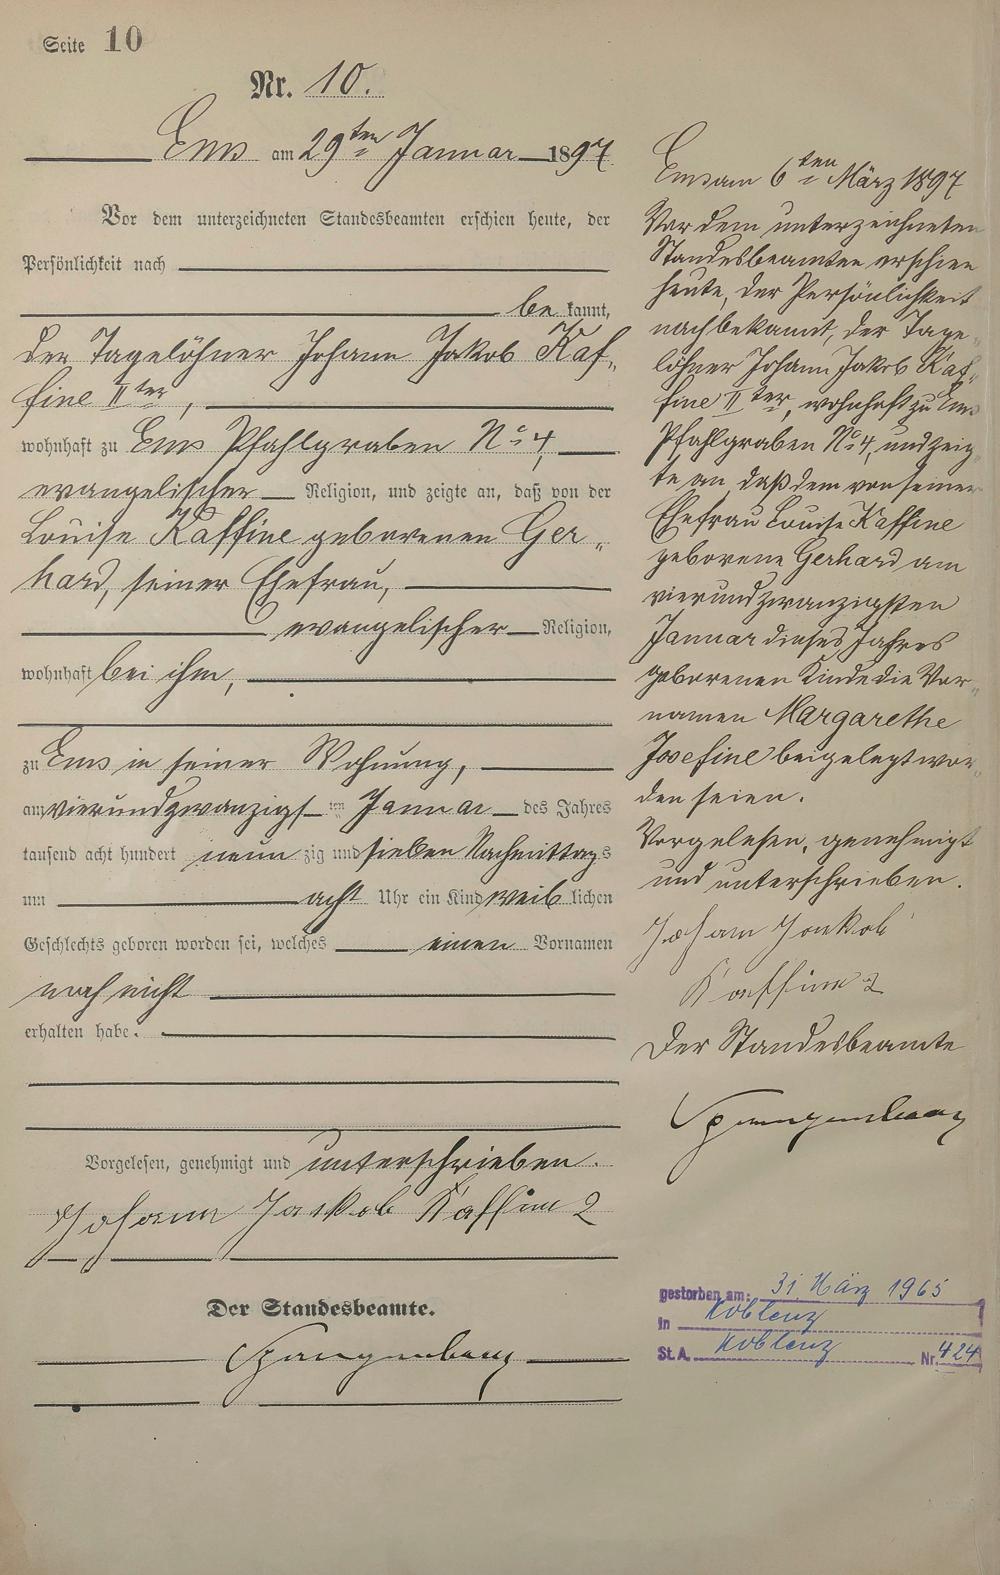 Seite 10
Nr. 10.
Ems am 29ten Januar 1897
Vor dem unterzeichneten Standesbeamten erschien heute, der
Persönlichkeit nach
be kannt,
der Tagelöhner Johann Jakob Kaf„
fine IIter,
wohnhaft zu Ems Pfahlgraben No 4,
evangelischer Religion, und zeigte an, daß von der
Louise Kaffine geborenen Ger„
hard, seiner Ehefrau,
evangelischer Religion,
wohnhaft bei ihm,
zu Ems in seiner Wohnung,
am vierundzwanzigs ten Januar des Jahres
tausend acht hundert neun zig und sieben Nachmittags
um acht Uhr ein Kind weib lichen
Geschlechts geboren worden sei, welches einen Vornamen
noch nicht
erhalten habe.
Vorgelesen, genehmigt und unterschrieben.
Johann Jakob Kaffine 2
Der Standesbeamte.
Spangenberg
Ems am 6ten März 1897
Vor dem unterzeichneten
Standesbeamten erschien
heute, der Persönlichkeit
nach bekannt, der Tage„
löhner Johann Jakob Kaf„
fine IIter, wohnhaft zu Ems
Pfahlgraben No 4, und zeig„
te an, daß dem von seiner
Ehefrau Louise Kaffine
geborene Gerhard am
vierundzwanzigsten
Januar dieses Jahres
geborenen Kinde die Vor„
namen Margarethe
Josefine beigelegt wor„
den seien.
Vorgelesen, genehmigt
und unterschrieben.
Johann Jakob
Kaffine 2
Der Standesbeamte
Spangenberg
gestorben am: 31 März 1965
in Koblenz
St. A. Koblenz Nr. 424